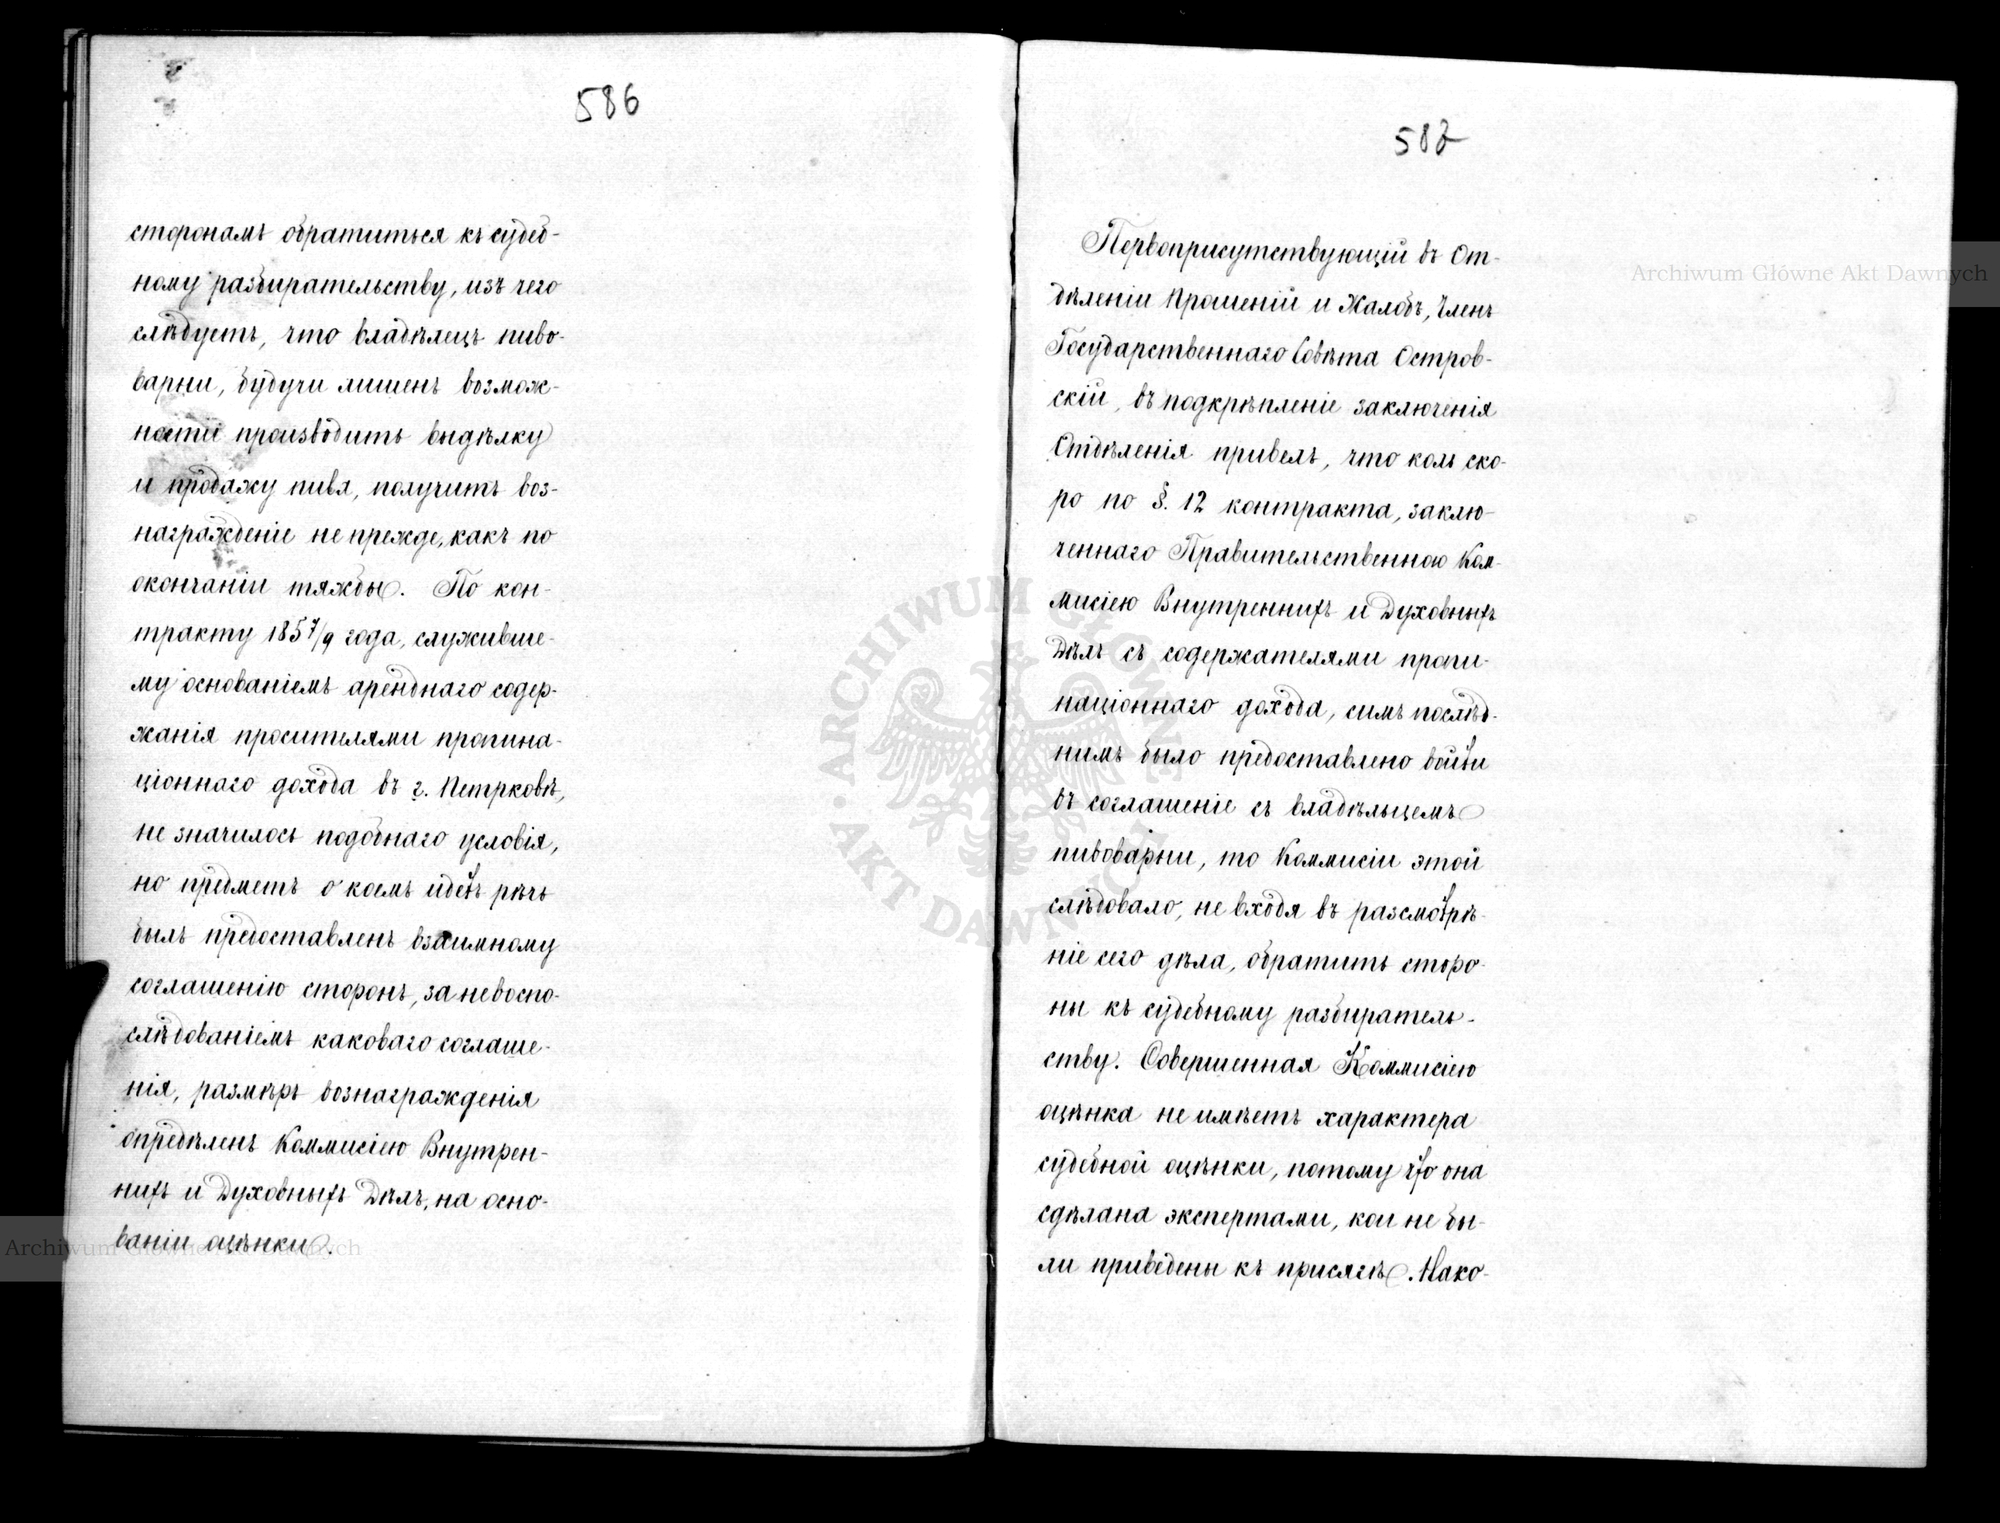 586
сторонамъ обратиться къ судеб-
ному разбирательству, изъ чего
слѣдуетъ, что владѣлецъ пиво-
варни, будучи лишенъ возмож-
ности производить выдѣлку
и продажу пива, получитъ воз-
награжденіе не прежде, какъ по
окончаніи тяжбы. По кон-
тракту 1857/9 года, служивше-
му основаніемъ аренднаго содер-
жанія просителями пропина-
ціоннаго дохода въ г. Петрковѣ,
не значилось подобнаго условія,
но предметъ о коемъ идетъ рѣчь
былъ предоставленъ взаимному
соглашенію сторонъ, за невоспо-
слѣдованіемъ каковаго соглаше-
нія, размѣръ вознагражденія
опредѣленъ Коммисіею Внутрен-
нихъ и Духовныхъ Дѣлъ, на осно-
ваніи оцѣнки.
587
Первоприсутствующій въ От-
дѣленіи Прошеній и Жалобъ, Членъ
Государственнаго Совѣта Остров-
скій, въ подкрѣпленіе заключенія
Отдѣленія привелъ, что коль ско-
ро по §. 12 контракта, заклю-
ченнаго Правительственною Ком-
мисіею Внутреннихъ и Духовныхъ
Дѣлъ съ содержателями пропи-
націоннаго дохода, симъ послѣд-
нимъ было предоставлено войти
въ соглашеніе съ владѣльцемъ
пивоварни, то Коммисіи этой
слѣдовало, не входя въ разсмотрѣ-
ніе сего дѣла, обратить сторо-
ны къ судебному разбиратель-
ству. Совершенная Коммисіею
оцѣнка не имѣетъ характера
судебной оцѣнки, потому что она
сдѣлана экспертами, кои не бы-
ли приведены къ присягѣ. Нако-
Archiwum Główne Akt Dawnych
ARCHIWUM GŁÓWNE · AKT DAWNYCH
Archiwum Główne Akt Dawnych